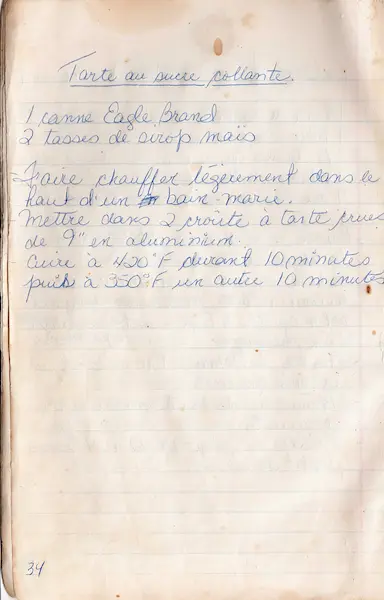 Tarte au sucre collante.
1 canne Eagle Brand
2 tasses de sirop maïs
Faire chauffer légèrement dans le
haut d'un bain-marie.
Mettre dans 2 croûte à tarte crues
de 9" en aluminium.
Cuire à 420°F durant 10 minutes
puis à 350°F un autre 10 minutes
34